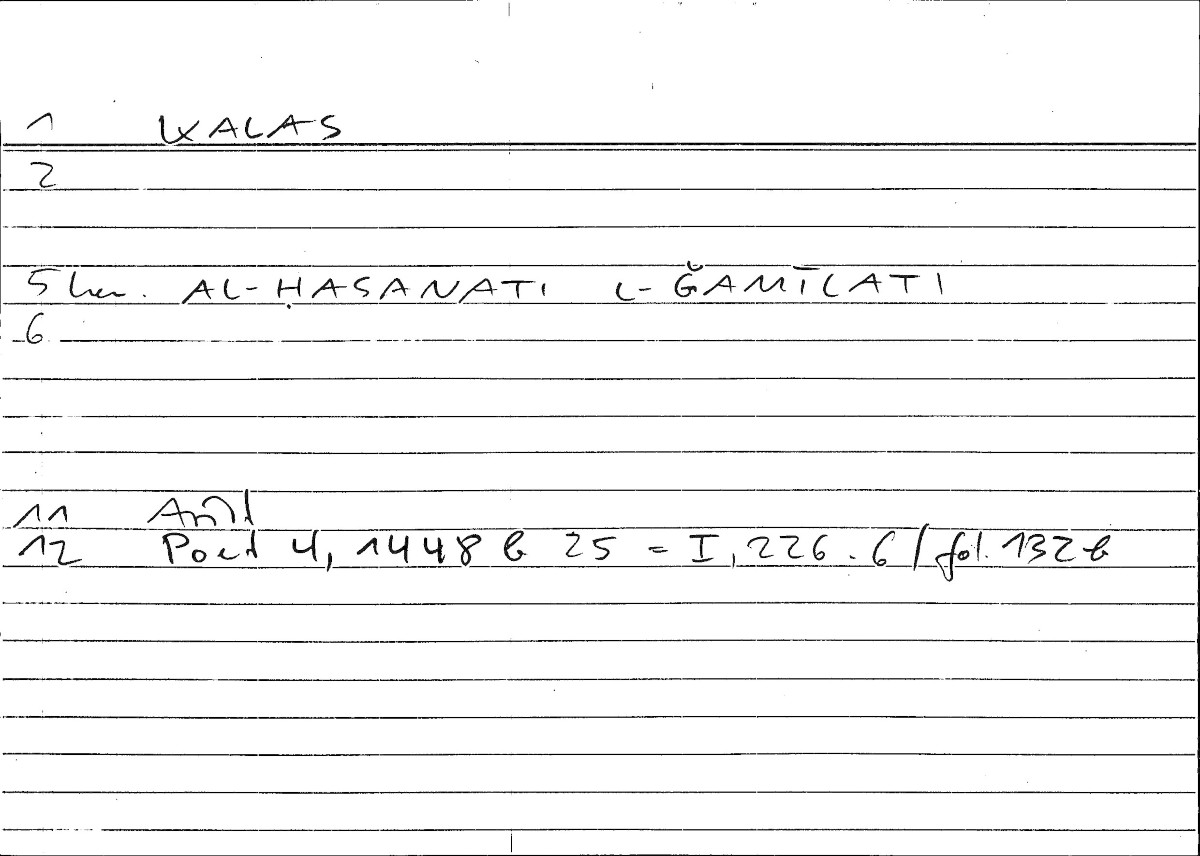 1 KALAS
2
5 her. AL-ḤASANATI L-ǦAMĪLATI
6
11 Arist
12 Poet 4, 1448 b 25 = I, 226.6 / fol. 132 b